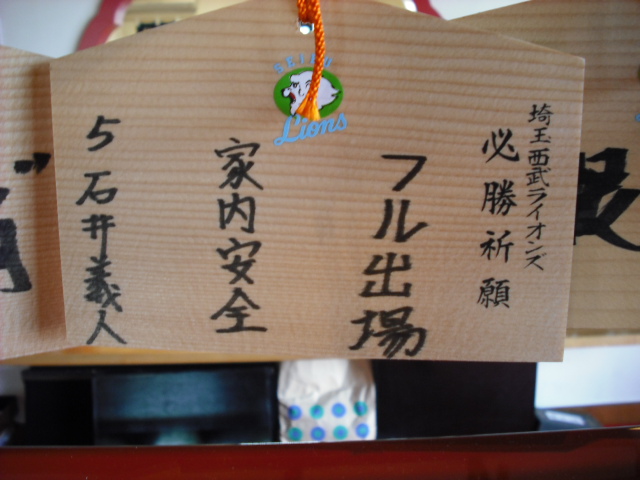 SEIBU
Lions
埼玉西武ライオンズ
必勝祈願
フル出場
家内安全
5 石井義人